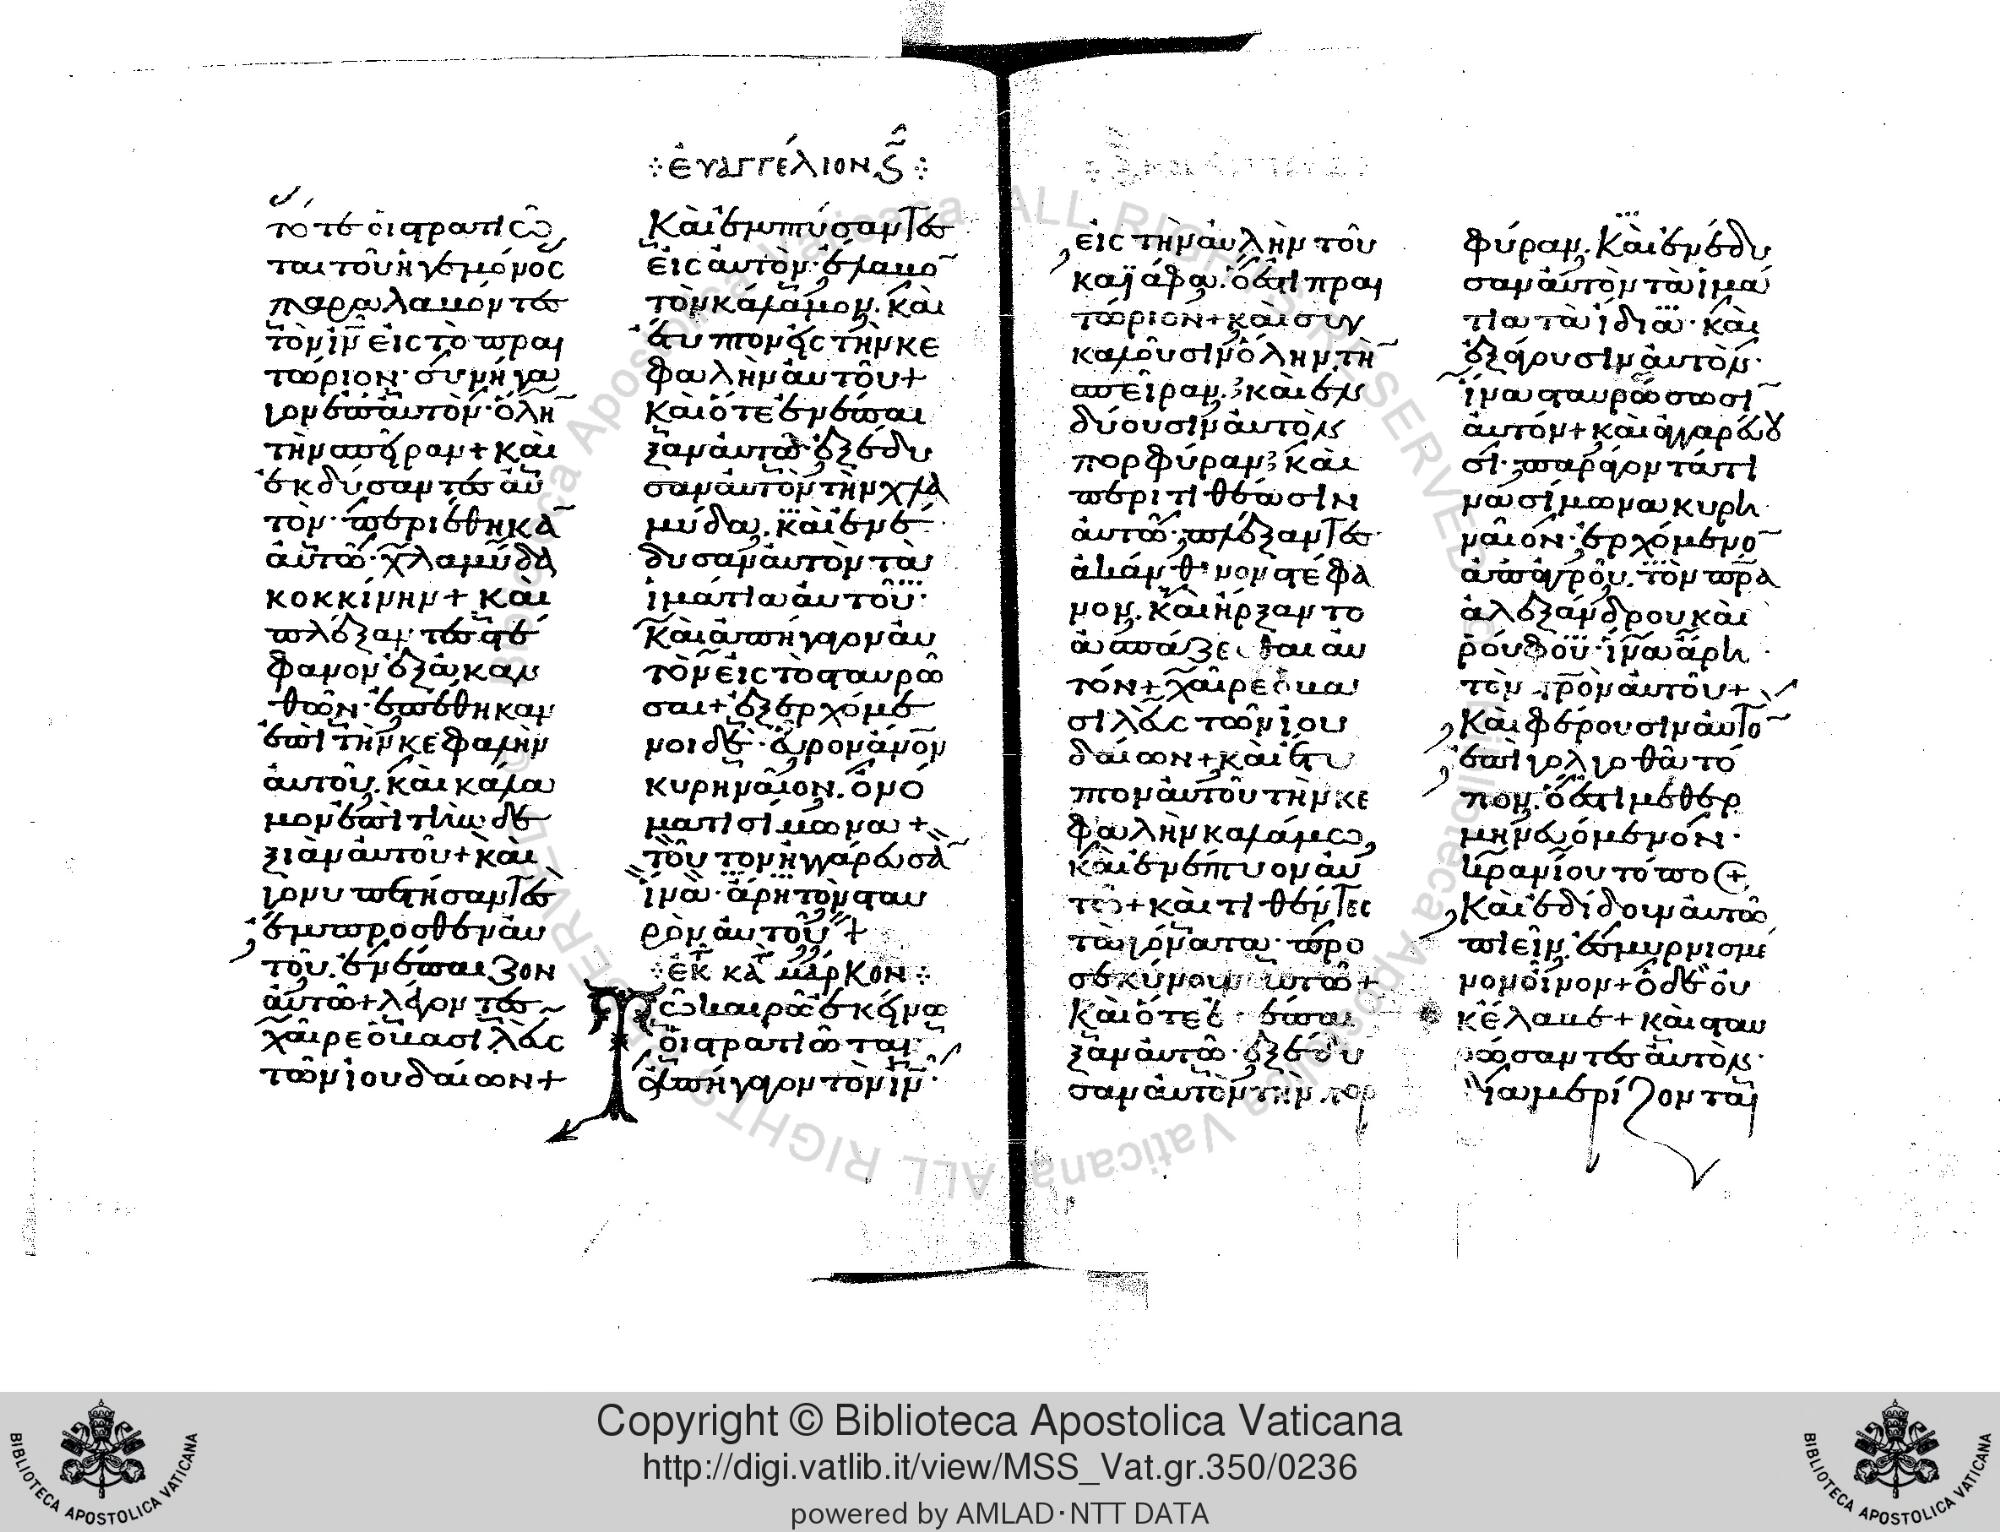 ⁘ εὐαγγέλιον ϛ ⁘
τότε οἱ στρατιῶ
ται τοῦ ἡγεμόνος
παραλαβόντες
τὸν ἰν εἰς τὸ πραι
τώριον· συνήγα
γον ἐπ' αὐτὸν· ὅλη
τὴν σπεῖραν + καὶ
ἐκδύσαντες αὐ
τὸν· περιέθηκα
αὐτῶ· χλαμύδα
κοκκίνην + καὶ
πλέξαντες στέ
φανον ἐξ ἀκαν
θῶν· ἐπέθηκαν
ἐπὶ τὴν κεφαλὴν
αὐτοῦ. καὶ κάλα
μον ἐπὶ τὴν δε
ξιὰν αὐτοῦ + καὶ
γονυπετήσαντες
ἔμπροσθεν αὐ
τοῦ. ἐνέπαιζον
αὐτῶ + λέγοντες
χαῖρε ὁ βασιλεὺς
τῶν ἰουδαίων +
Καὶ ἐμπτύσαντες
εἰς αὐτὸν· ἔλαβο
τὸν κάλαμον. καὶ
ἔτυπτον εἰς τὴν κε
φαλὴν αὐτοῦ +
Καὶ ὅτε ἐνέπαι
ξαν αὐτῶ· ἐξέδυ
σαν αὐτὸν τὴν χλα
μύδα. καὶ ἐνέ
δυσαν αὐτὸν τὰ
ἱμάτια αὐτοῦ·
Καὶ ἀπήγαγον αὐ
τὸν εἰς τὸ σταυρῶ
σαι + ἐξερχόμε
νοι δὲ· εὗρον ἄνον
κυρηναῖον. ὀνό
ματι σίμωνα +
τοῦτον ἠγγάρευσα
ἵνα· ἄρη τὸν σταυ
ρὸν αὐτοῦ +
⁘ ἐκ κατ μάρκον ⁘
Τῶ καιρῶ ἐκείνω
οἱ στρατιῶται
ἀπήγαγον τὸν ἰν·
εἰς τὴν αὐλὴν τοῦ
καϊάφα. ὅ ἐστι πραι
τώριον + καὶ συγ
καλοῦσιν ὅλην τὴ
σπεῖραν. καὶ ἐν
δύουσιν αὐτὸν
πορφύραν. καὶ
περιτιθέασιν
αὐτῶ· πλέξαντες
ἀκάνθινον στέφα
νον. καὶ ἤρξαντο
ἀσπάζεσθαι αὐ
τόν + χαῖρε ὁ βα
σιλεὺς τῶν ἰου
δαίων + καὶ ἔτυ
πτον αὐτοῦ τὴν κε
φαλὴν καλάμω,
καὶ ἐνέπτυον αὐ
τῶ + καὶ τιθέντες
τὰ γόνατα· προ
σεκύνουν αὐτῶ +
Καὶ ὅτε ἐνέπαι
ξαν αὐτῶ· ἐξέδυ
σαν αὐτὸν τὴν πορ
φύραν. Καὶ ἐνέδυ
σαν αὐτὸν τὰ ἱμά
τια τὰ ἴδια· καὶ
ἐξάγουσιν αὐτὸν·
ἵνα σταυρώσωσι
αὐτόν + καὶ ἀγγαρεύου
σι· παράγοντά τι
να σίμωνα κυρη
ναῖον· ἐρχόμενο
ἀπ' ἀγροῦ. τὸν πρα
ἀλεξάνδρου καὶ
ῥούφου· ἵνα ἄρη
τὸν σταυρὸν αὐτοῦ +
Καὶ φέρουσιν αὐτο
ἐπὶ γολγοθᾶ τό
πον. ὅ ἐστι μεθερ
μηνευόμενον·
κρανίου τόπος +
Καὶ ἐδίδουν αὐτῶ
πιεῖν. ἐσμυρνισμέ
νον οἶνον + ὁ δὲ οὐ
κ ἔλαβε + καὶ σταυ
ρώσαντες αὐτὸν·
διαμερίζονται
Copyright © Biblioteca Apostolica Vaticana
http://digi.vatlib.it/view/MSS_Vat.gr.350/0236
powered by AMLAD·NTT DATA
BIBLIOTECA APOSTOLICA VATICANA
BIBLIOTECA APOSTOLICA VATICANA
© Biblioteca Apostolica Vaticana ALL RIGHTS RESERVED © Biblioteca Apostolica Vaticana ALL RIGHTS RESERVED